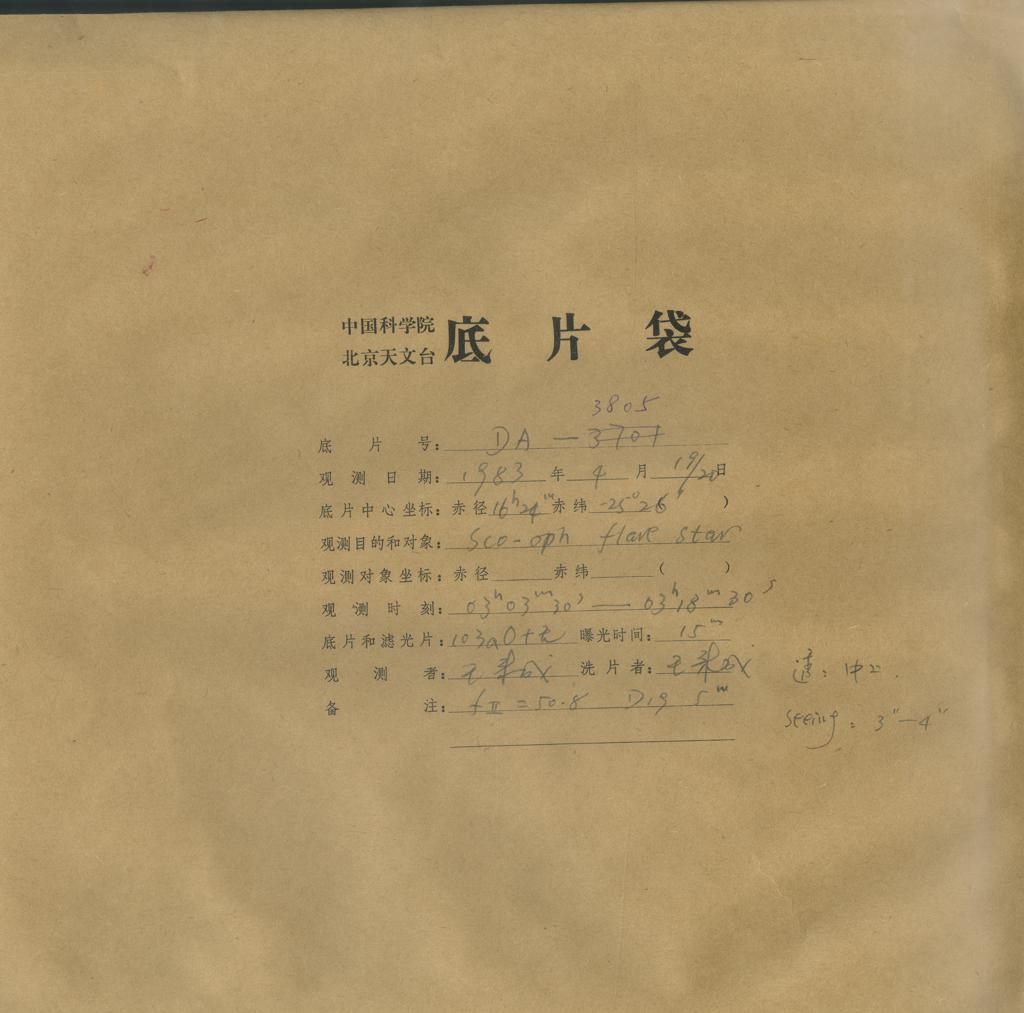 中国科学院
北京天文台
底片袋
3805
底片号: DA — 3701
观测日期: 1983 年 4 月 19/20 日
底片中心坐标: 赤径 16h 24m 赤纬 -25° 26′ )
观测目的和对象: Sco-oph flare star
观测对象坐标: 赤径 赤纬 ( )
观测时刻: 03h 03m 30s — 03h 18m 30s
底片和滤光片: 103aO+无 曝光时间: 15m
观测者: 王 洗片者: 王
备注: fII = 50.8 D19 5m
seeing: 3″—4″